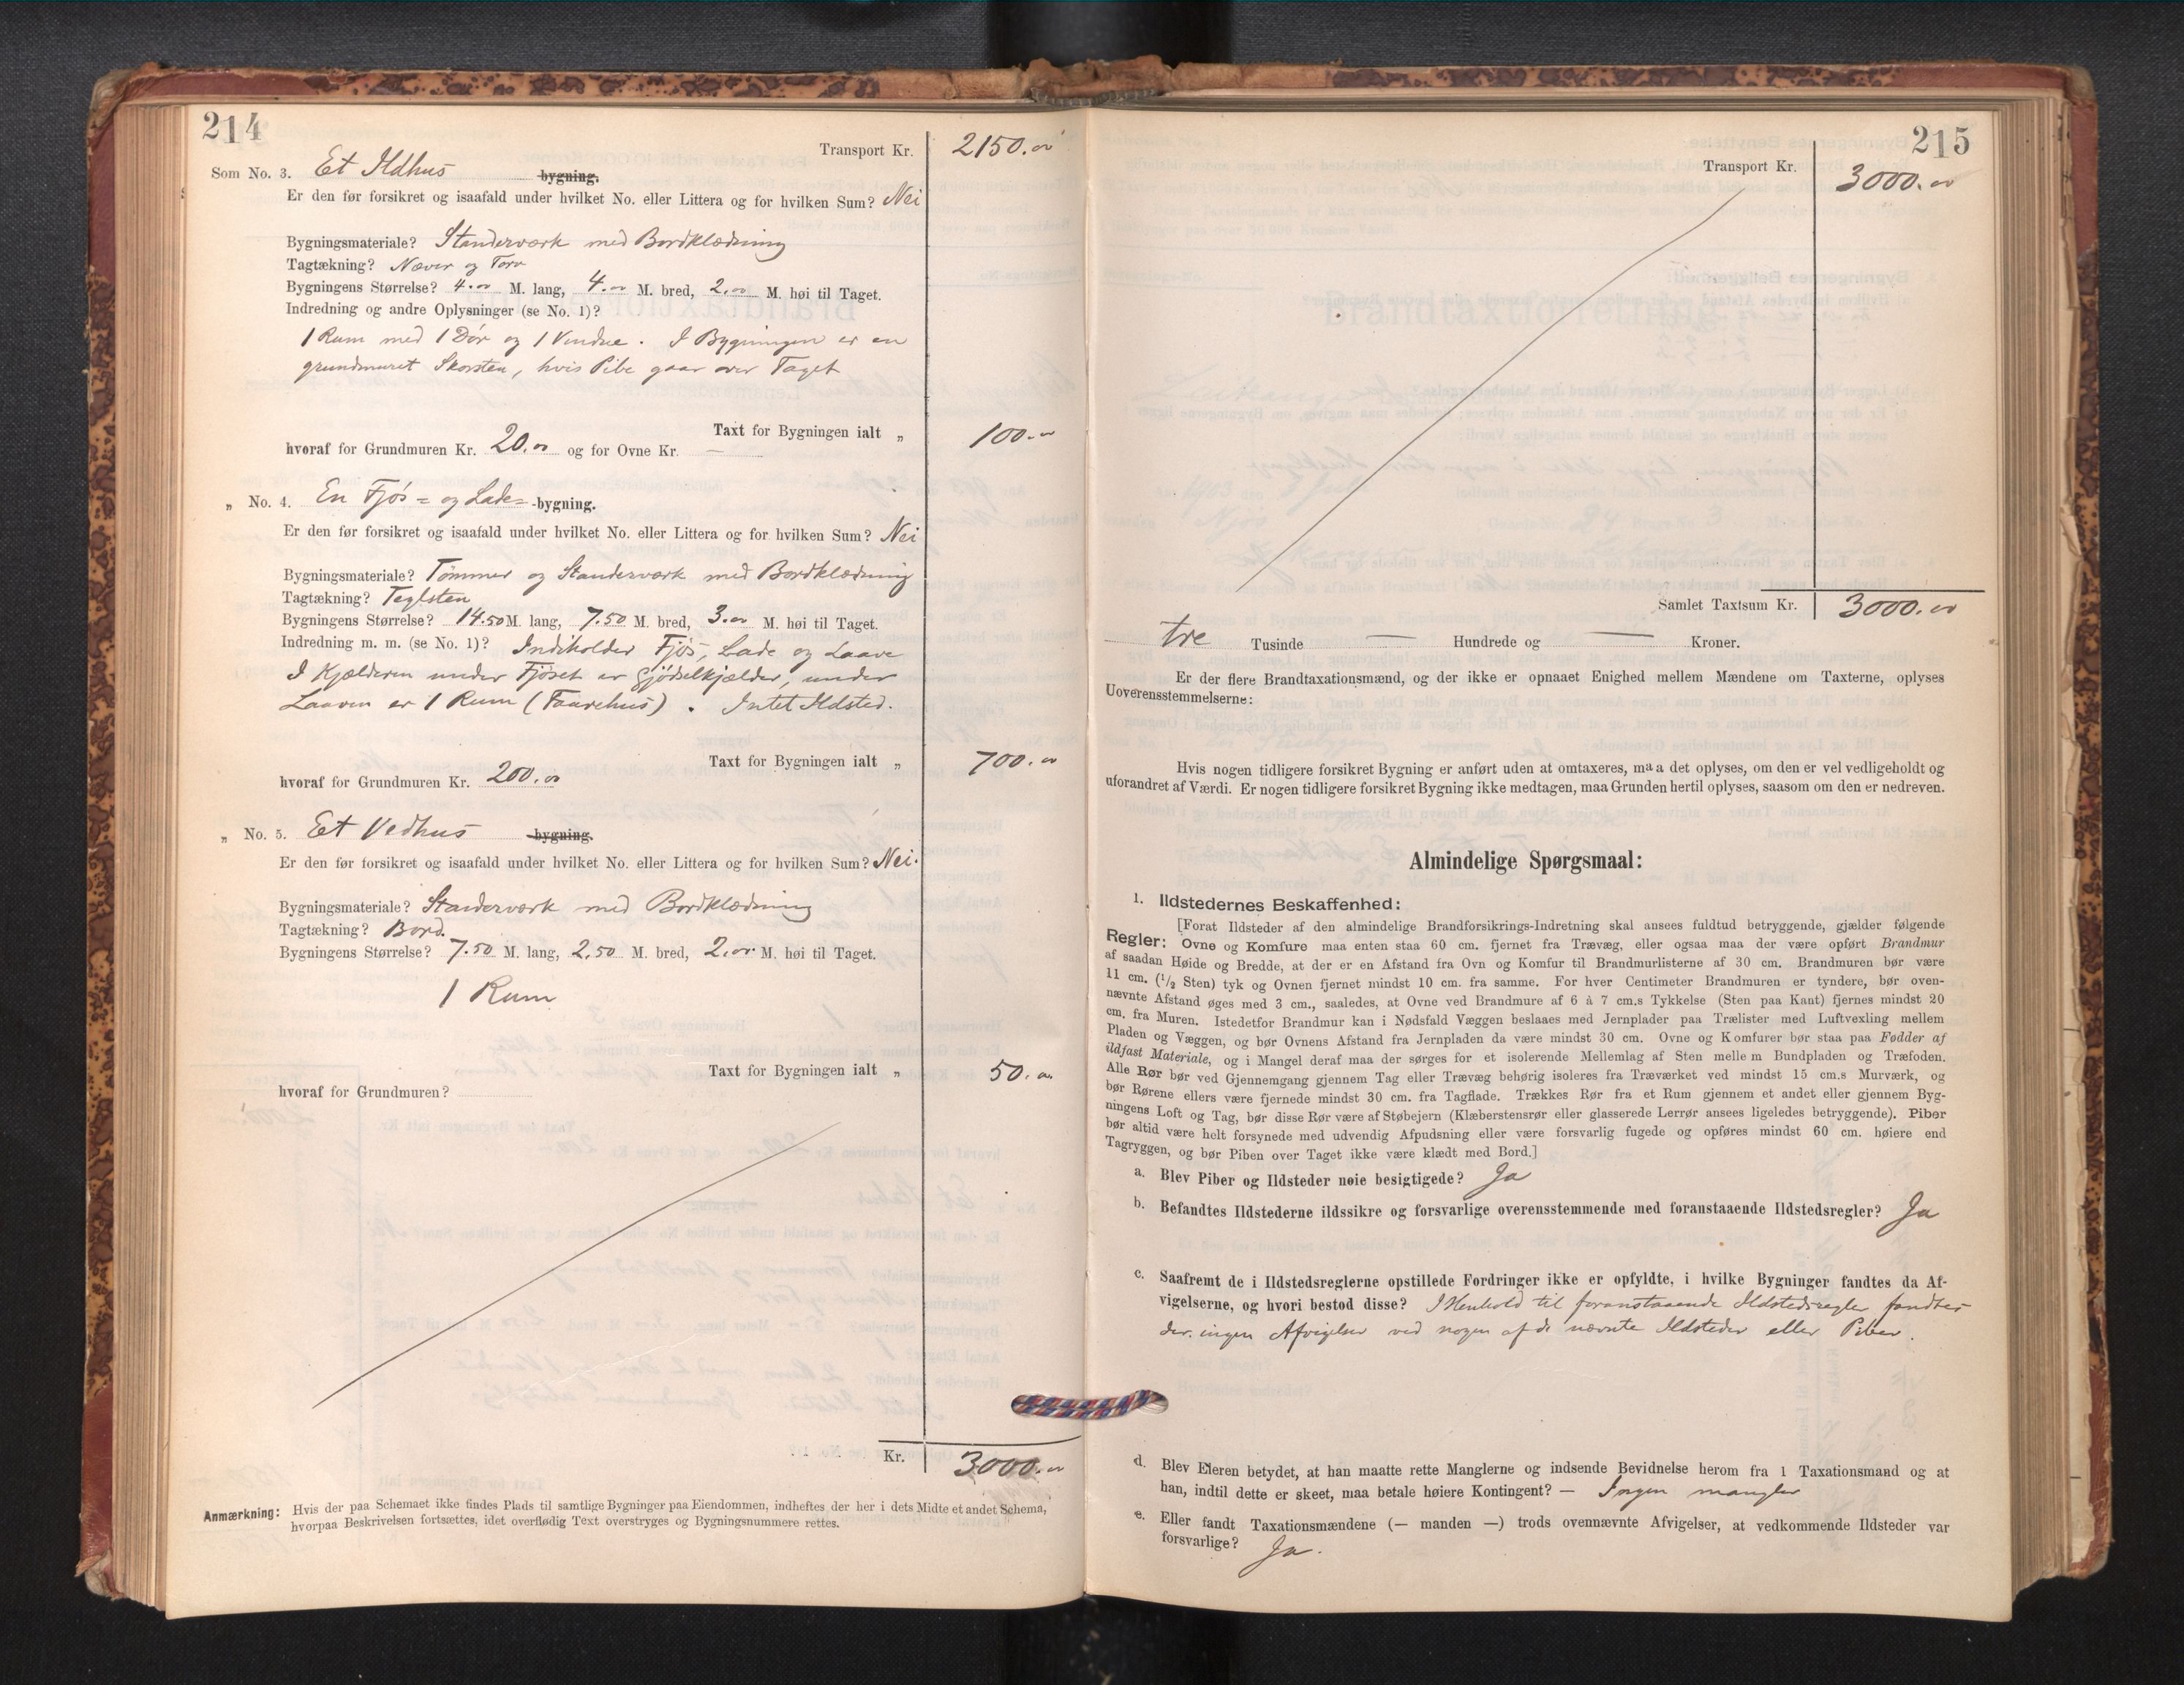 214
Transport Kr. 2150.00
Som No. 3. Et Ildhus bygning.
Er den før forsikret og isaafald under hvilket No. eller Littera og for hvilken Sum? Nei
Bygningsmateriale? Standerværk med Bordklædning
Tagtækning? Næver og Torv
Bygningens Størrelse? 4.00 M. lang, 4.00 M. bred, 2.00 M. høi til Taget.
Indredning og andre Oplysninger (se No. 1)?
1 Rum med 1 Dör og 1 Vindue. I Bygningen er en
grundmuret Skorsten, hvis Pibe gaar over Taget
Taxt for Bygningen ialt „ 100.00
hvoraf for Grundmuren Kr. 20.00 og for Ovne Kr. —
„ No. 4. En Fjös= og Lade= -bygning.
Er den før forsikret og isaafald under hvilket No. eller Littera og for hvilken Sum? Nei
Bygningsmateriale? Tömmer og Standerværk med Bordklædning
Tagtækning? Teglsten
Bygningens Størrelse? 14.50 M. lang, 7.50 M. bred, 3.00 M. høi til Taget.
Indredning m. m. (se No. 1)? Indeholder Fjös, Lade og Laave
I Kjælderen under Fjöset er Gjödselkjælder, under
Laaven er 1 Rum (Faurehus). Intet Ildsted.
Taxt for Bygningen ialt „ 700.00
hvoraf for Grundmuren Kr. 200.00
„ No. 5. Et Vedhus bygning.
Er den før forsikret og isaafald under hvilket No. eller Littera og for hvilken Sum? Nei.
Bygningsmateriale? Standerværk med Bordklædning
Tagtækning? Bord.
Bygningens Størrelse? 7.50 M. lang, 2.50 M. bred, 2.00 M. høi til Taget.
1 Rum
Taxt for Bygningen ialt „ 50.00
hvoraf for Grundmuren?
Kr. 3000.00
Anmærkning: Hvis der paa Schemaet ikke findes Plads til samtlige Bygninger paa Eiendommen, indheftes der her i dets Midte et andet Schema,
hvorpaa Beskrivelsen fortsættes, idet overflødig Text overstryges og Bygningsnummere rettes.
215
Transport Kr. 3000.00
Samlet Taxtsum Kr. 3000.00
tre Tusinde — Hundrede og — Kroner.
Er der flere Brandtaxationsmænd, og der ikke er opnaaet Enighed mellem Mændene om Taxterne, oplyses
Uoverensstemmelserne:
Hvis nogen tidligere forsikret Bygning er anført uden at omtaxeres, maa det oplyses, om den er vel vedligeholdt og
uforandret af Værdi. Er nogen tidligere forsikret Bygning ikke medtagen, maa Grunden hertil oplyses, saasom om den er nedreven.
Almindelige Spørgsmaal:
1. Ildstedernes Beskaffenhed:
[Forat Ildsteder af den almindelige Brandforsikrings-Indretning skal ansees fuldtud betryggende, gjælder følgende
Regler: Ovne og Komfure maa enten staa 60 cm. fjernet fra Trævæg, eller ogsaa maa der være opført Brandmur
af saadan Høide og Bredde, at der er en Afstand fra Ovn og Komfur til Brandmurlisterne af 30 cm. Brandmuren bør være
11 cm. (1/2 Sten) tyk og Ovnen fjernet mindst 10 cm. fra samme. For hver Centimeter Brandmuren er tyndere, bør oven-
nævnte Afstand øges med 3 cm., saaledes, at Ovne ved Brandmure af 6 à 7 cm.s Tykkelse (Sten paa Kant) fjernes mindst 20
cm. fra Muren. Istedetfor Brandmur kan i Nødsfald Væggen beslaaes med Jernplader paa Trælister med Luftvexling mellem
Pladen og Væggen, og bør Ovnens Afstand fra Jernpladen da være mindst 30 cm. Ovne og Komfurer bør staa paa Fødder af
ildfast Materiale, og i Mangel deraf maa der sørges for et isolerende Mellemlag af Sten mellem Bundpladen og Træfoden.
Alle Rør bør ved Gjennemgang gjennem Tag eller Trævæg behørig isoleres fra Træværket ved mindst 15 cm.s Murværk, og
bør Rørene ellers være fjernede mindst 30 cm. fra Tagflade. Trækkes Rør fra et Rum gjennem et andet eller gjennem Byg-
ningens Loft og Tag, bør disse Rør være af Støbejern (Klæberstensrør eller glasserede Lerrør ansees ligeledes betryggende). Piber
bør altid være helt forsynede med udvendig Afpudsning eller være forsvarlig fugede og opføres mindst 60 cm. høiere end
Tagryggen, og bør Piben over Taget ikke være klædt med Bord.]
a. Blev Piber og Ildsteder nøie besigtigede? Ja
b. Befandtes Ildstederne ildssikre og forsvarlige overensstemmende med foranstaaende Ildstedsregler? Ja
c. Saafremt de i Ildstedsreglerne opstillede Fordringer ikke er opfyldte, i hvilke Bygninger fandtes da Af-
vigelserne, og hvori bestod disse? I Henhold til foranstaaende Ildstedsregler fandtes
der ingen Afvigelser ved nogen af de nævnte Ildsteder eller Piber.
d. Blev Eieren betydet, at han maatte rette Manglerne og indsende Bevidnelse herom fra 1 Taxationsmand og at
han, indtil dette er skeet, maa betale høiere Kontingent? — Ingen mangler
e. Eller fandt Taxationsmændene (— manden —) trods ovennævnte Afvigelser, at vedkommende Ildsteder var
forsvarlige? Ja.